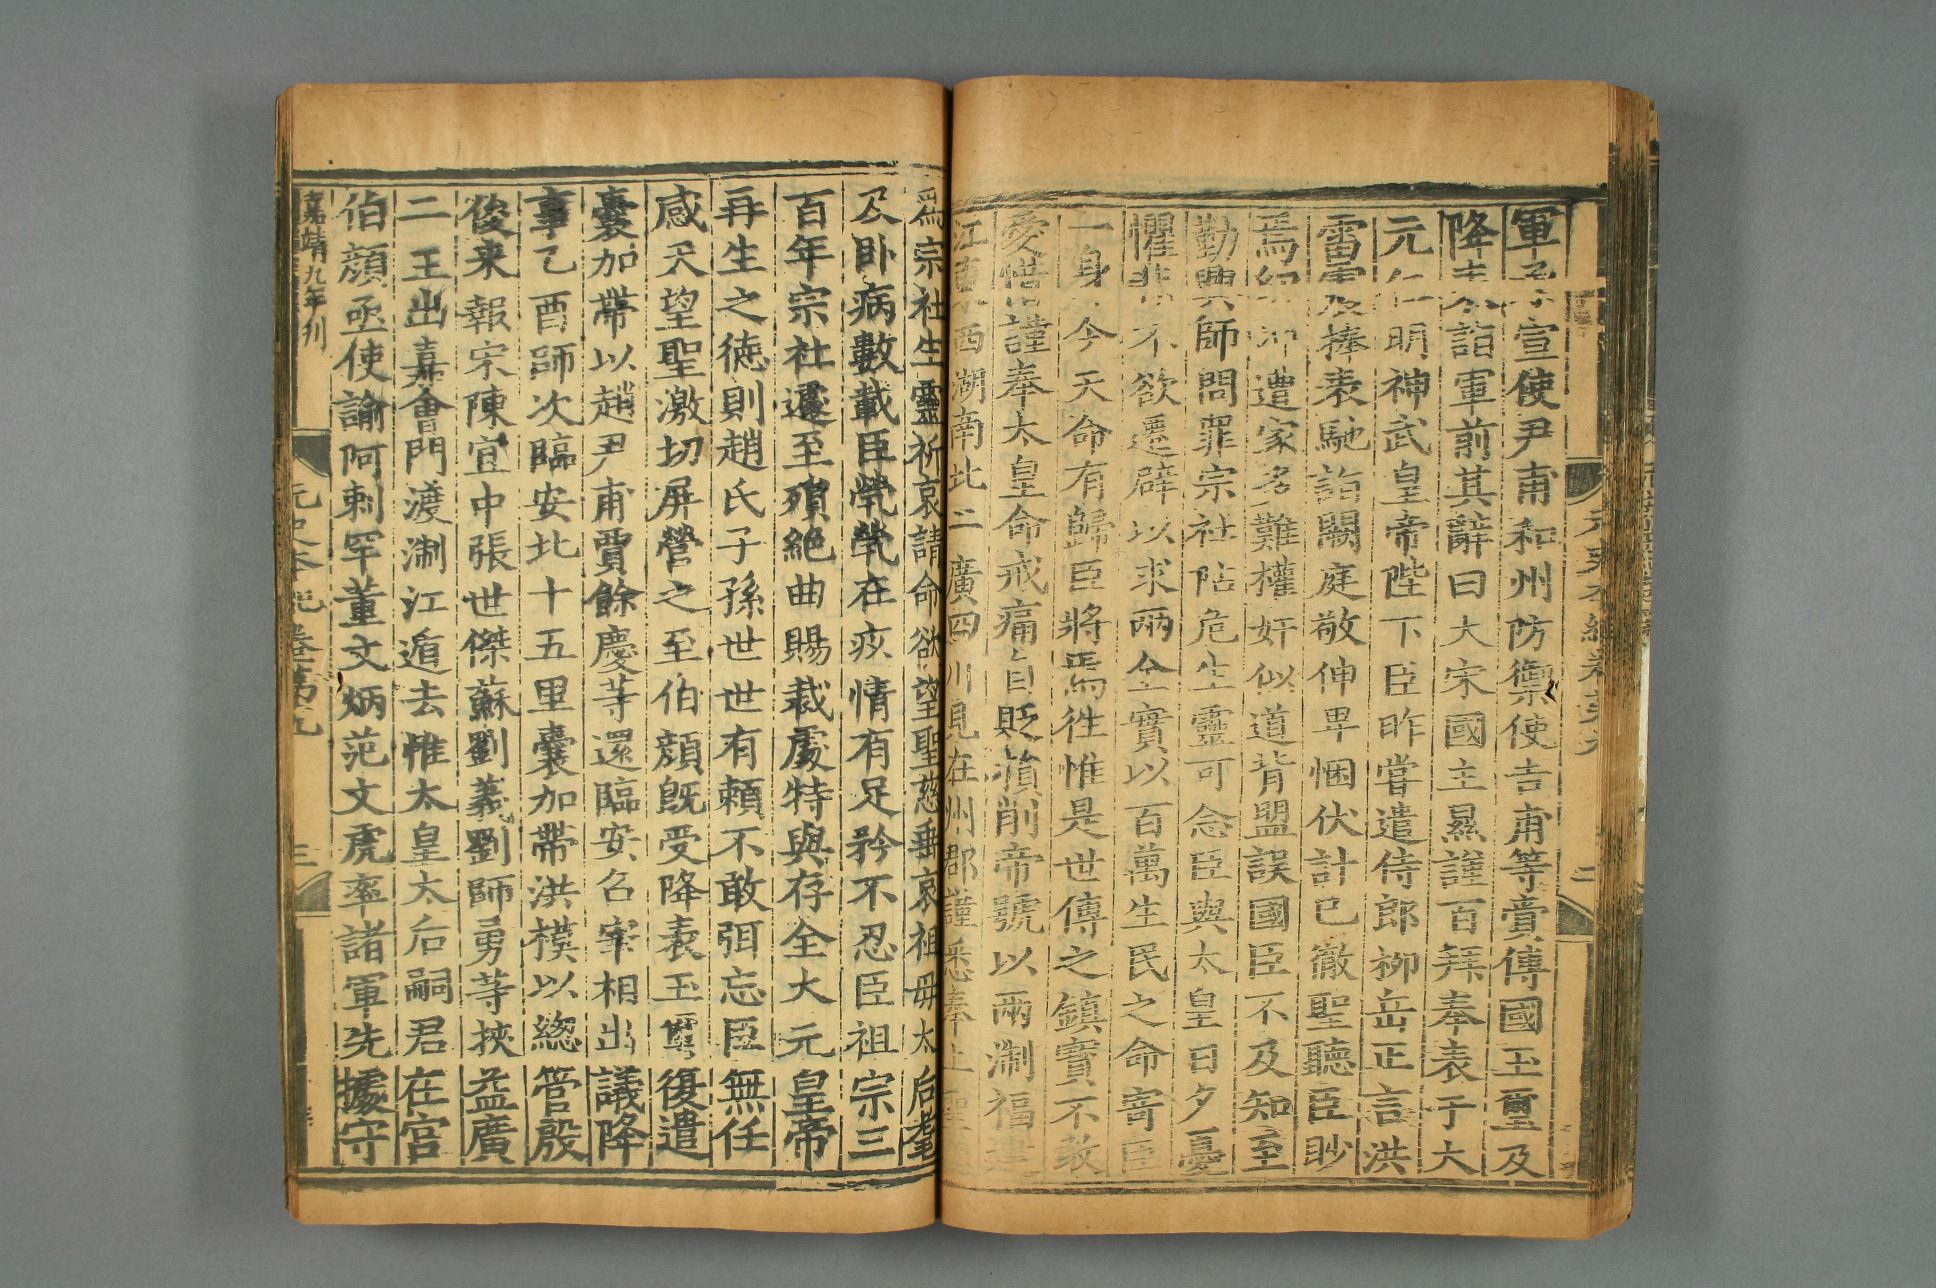 軍 宣使尹甫和州防禦使吉甫等賫傳國玉璽及
降表 詣軍前其辭曰大宋國主㬎謹百拜奉表于大
元仁明神武皇帝陛下臣昨嘗遣侍郎柳岳正言洪
雷震捧表馳詣闕庭敬伸卑悃伏計已徹聖聽臣眇
焉幼沖遭家多難權奸似道背盟誤國臣不及知至
勤興師問罪宗社阽危生靈可念臣與太皇日夕憂
懼非不欲遷辟以求兩全實以百萬生民之命寄臣
一身今天命有歸臣將焉往惟是世傳之鎮寶不敢
愛惜謹奉太皇命戒痛自貶損削帝號以兩淛福建
江東西湖南北二廣四川見在州郡謹悉奉上聖
元史本紀卷第九
二
為宗社生靈祈哀請命欲望聖慈垂哀祖母太后耄
及卧病數載臣煢煢在疚情有足矜不忍臣祖宗三
百年宗社遽至殞絶曲賜裁處特與存全大元皇帝
再生之德則趙氏子孫世世有賴不敢弭忘臣無任
感天望聖激切屏營之至伯顔旣受降表玉璽復遣
囊加帶以趙尹甫賈餘慶等還臨安召宰相出議降
事乙酉師次臨安北十五里囊加帶洪模以緫管殷
俊来報宋陳宜中張世傑蘇劉義劉師勇等挾益廣
二王出嘉會門渡淛江遁去惟太皇太后嗣君在宫
伯顔亟使諭阿剌罕董文炳范文虎率諸軍先據守
嘉靖九年刊
元史本紀卷第九
三